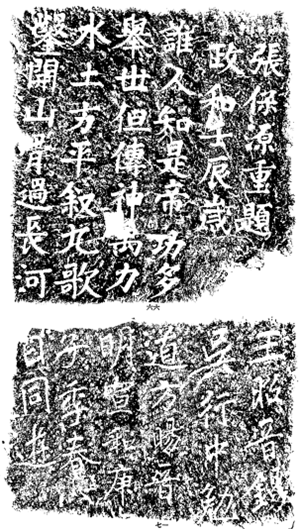 鑿開山骨過長河
水土方平叙九歌
舉世但傳神禹力
誰人知是帝功多
政和壬辰歲
張保源重題
六六
吳行中勉
道方暘音
明宣和庚
子季春
日同遊